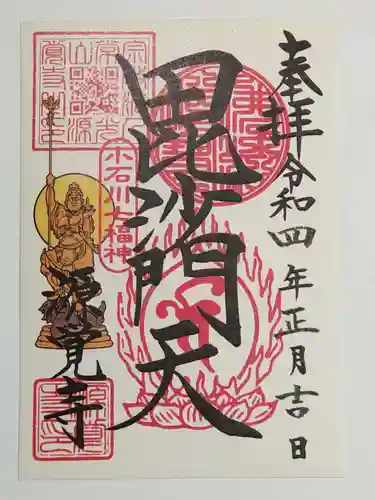 奉拝
令和四年正月吉日
毘沙門天
小石川七福神
源覚寺